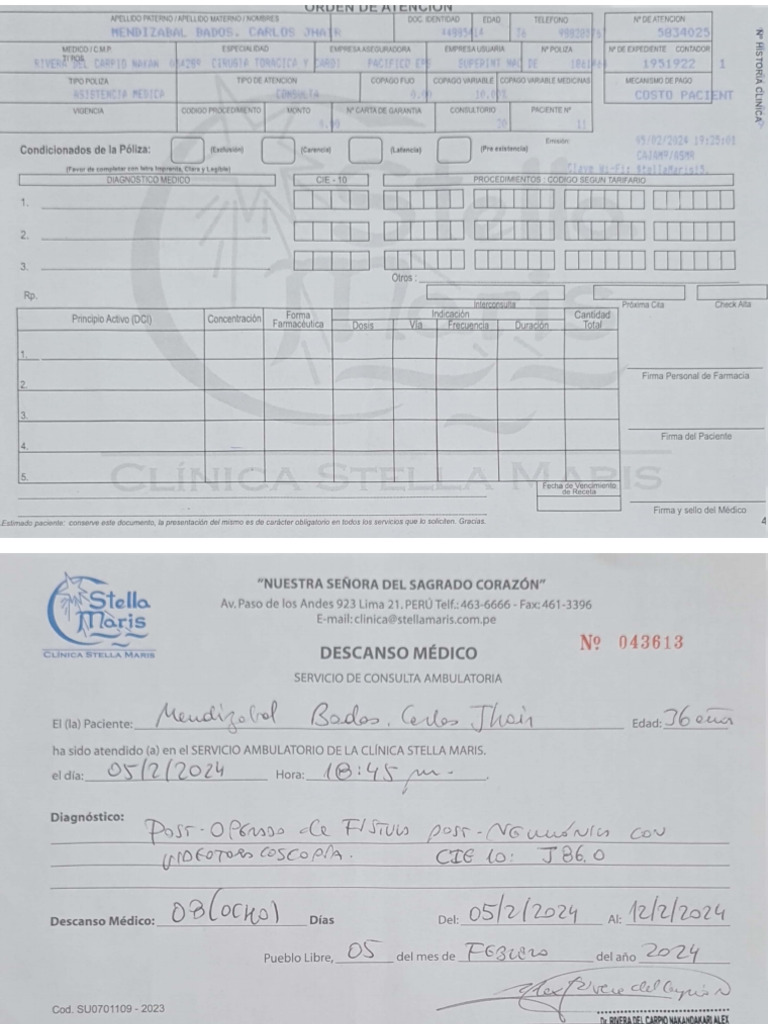 ORDEN DE ATENCION
APELLIDO PATERNO / APELLIDO MATERNO / NOMBRES DOC. IDENTIDAD EDAD TELEFONO Nº DE ATENCION
MENDIZABAL BADOS, CARLOS JHAIR 36 5834025
MEDICO / C.M.P. ESPECIALIDAD EMPRESA ASEGURADORA EMPRESA USUARIA Nº POLIZA Nº DE EXPEDIENTE CONTADOR
RIVERA DEL CARPIO NAKAN CIRUGIA TORACICA Y CARDI PACIFICO EPS SUPERINT NAC DE 1951922 1
TIPO POLIZA TIPO DE ATENCION COPAGO FIJO COPAGO VARIABLE COPAGO VARIABLE MEDICINAS MECANISMO DE PAGO
ASISTENCIA MEDICA CONSULTA 0.00 COSTO PACIENT
VIGENCIA CODIGO PROCEDIMIENTO MONTO Nº CARTA DE GARANTIA CONSULTORIO PACIENTE Nº
0.00 20 11
Nº HISTORIA CLINICA
Condicionados de la Póliza: (Exclusión) (Carencia) (Latencia) (Pre existencia) Emisión:
05/02/2024 19:25:01
(Favor de completar con letra Imprenta, Clara y Legible)
DIAGNOSTICO MEDICO CIE - 10 PROCEDIMIENTOS : CODIGO SEGUN TARIFARIO
1.
2.
3.
Otros :
Rp. Interconsulta Próxima Cita Check Alta
Principio Activo (DCI) Concentración Forma Farmacéutica Indicación Cantidad Total
Dosis Vía Frecuencia Duración
1.
2.
3.
4.
5.
Firma Personal de Farmacia
Firma del Paciente
CLÍNICA STELLA MARIS
Fecha de Vencimiento de Receta
Firma y sello del Médico
Estimado paciente: conserve este documento, la presentación del mismo es de carácter obligatorio en todos los servicios que lo soliciten. Gracias.
4
Stella Maris
CLÍNICA STELLA MARIS
"NUESTRA SEÑORA DEL SAGRADO CORAZÓN"
Av. Paso de los Andes 923 Lima 21. PERÚ Telf.: 463-6666 - Fax: 461-3396
E-mail: clinica@stellamaris.com.pe
Nº 043613
DESCANSO MÉDICO
SERVICIO DE CONSULTA AMBULATORIA
El (la) Paciente: Mendizabal Bados, Carlos Jhair Edad: 36 años
ha sido atendido (a) en el SERVICIO AMBULATORIO DE LA CLÍNICA STELLA MARIS.
el día: 05/2/2024 Hora: 18:45 pm.
Diagnóstico: POST-OPERADO de FISTULA POST-NEUMÓNICA CON
VIDEOTORACOSCOPÍA. CIE 10: J86.0
Descanso Médico: 08 (OCHO) Días Del: 05/2/2024 Al: 12/2/2024
Pueblo Libre, 05 del mes de FEBRERO del año 2024
Alex Rivera del Carpio N
Cod. SU0701109 - 2023
Dr. RIVERA DEL CARPIO NAKANDAKARI ALEX